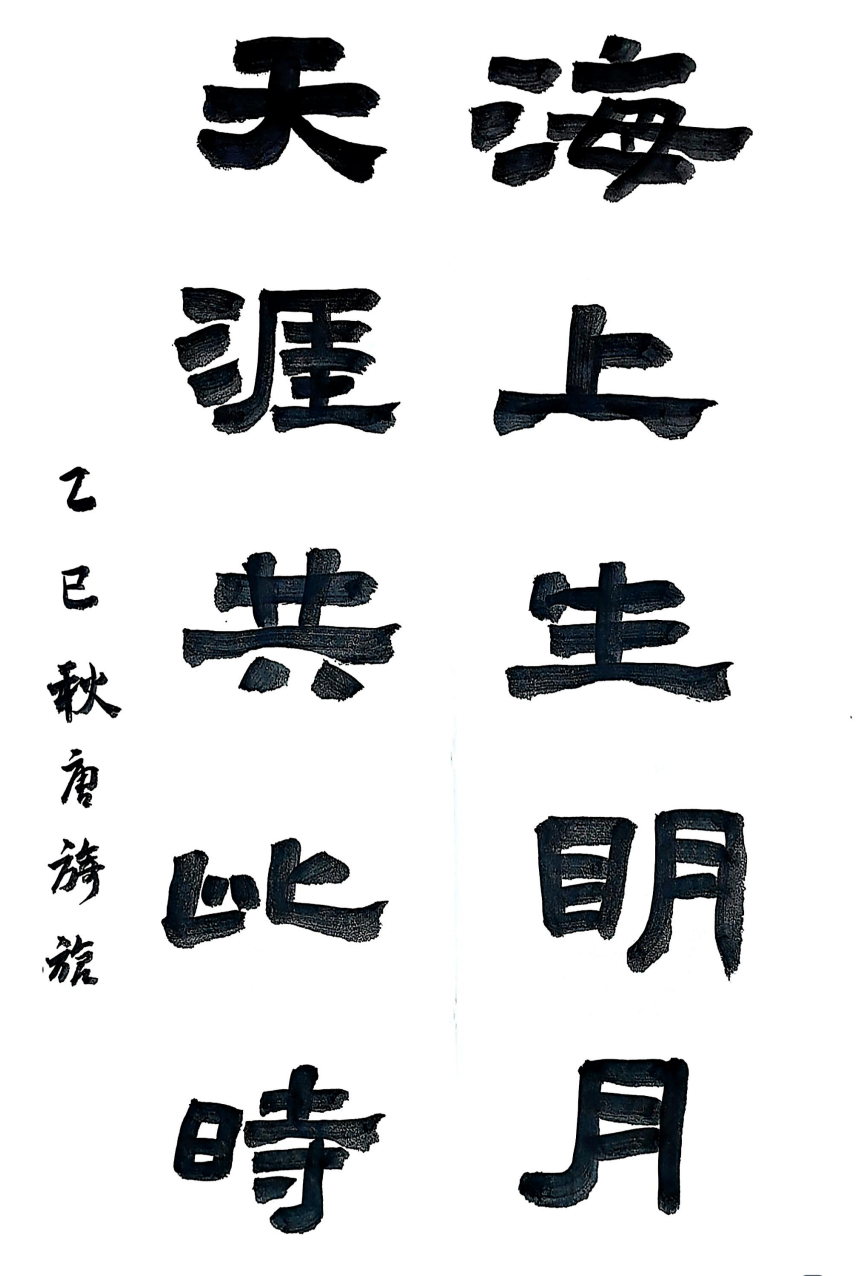 海上生眀月
天涯共此時
乙巳秋唐旖